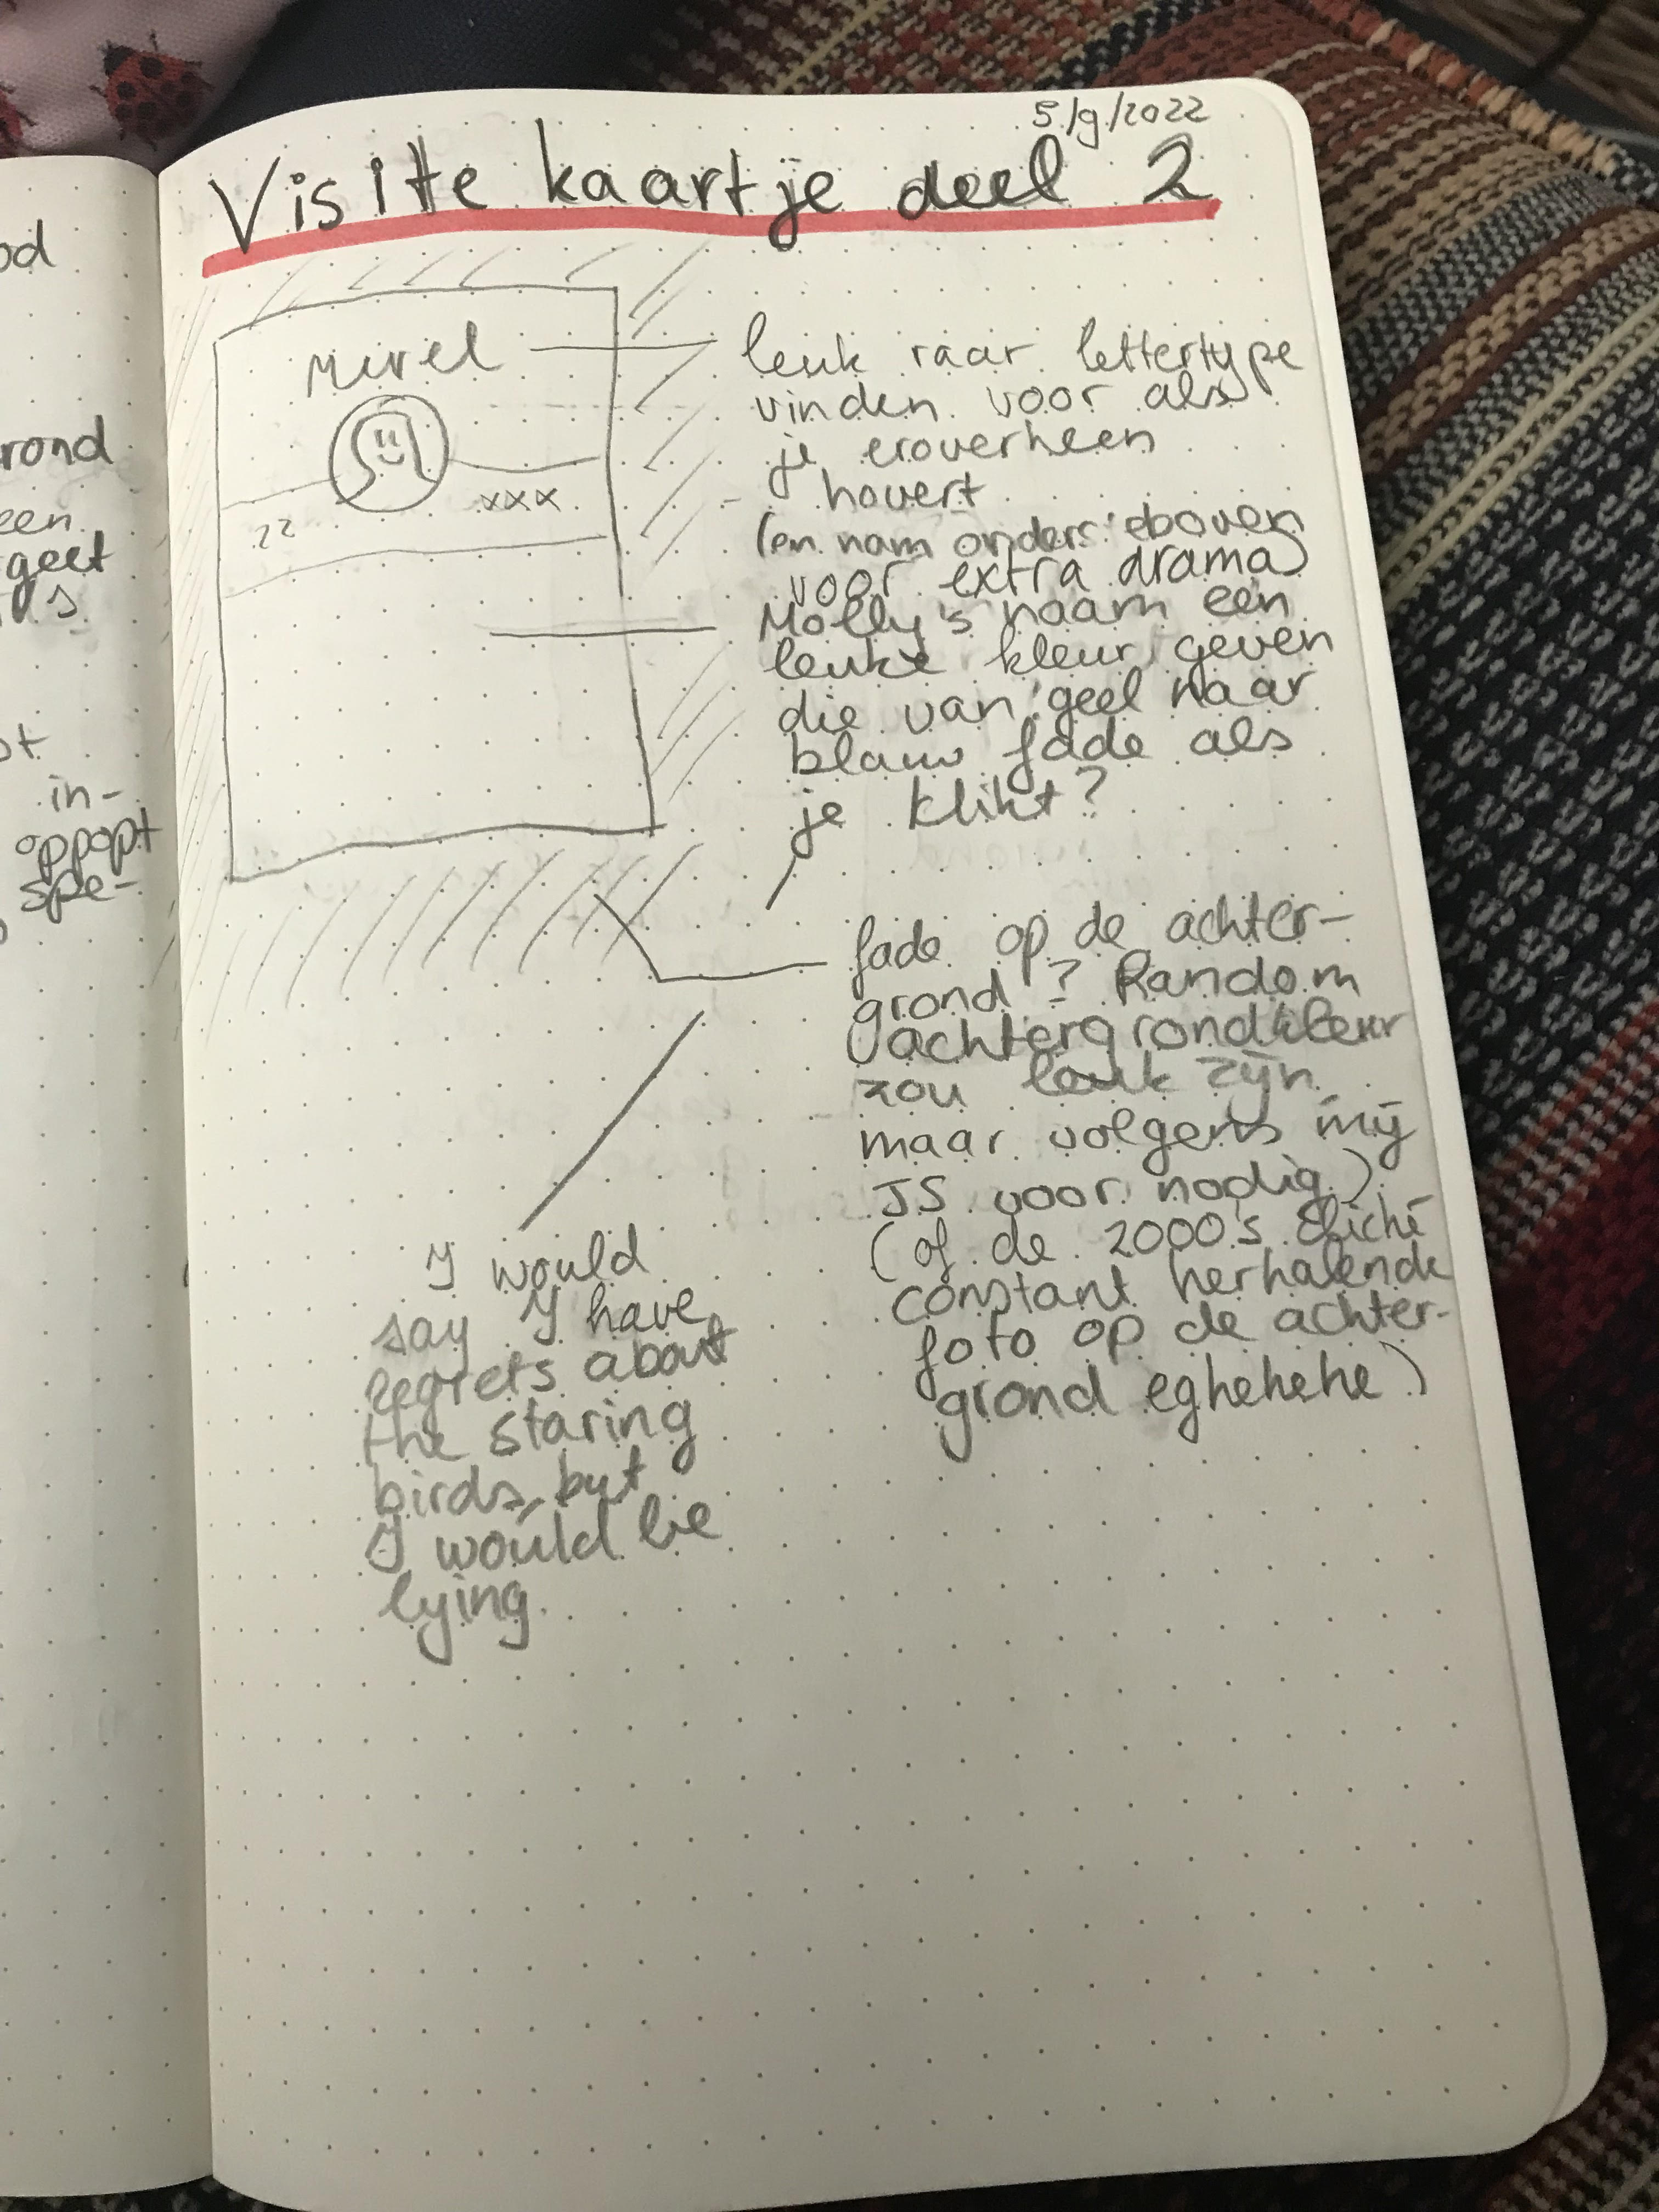 od
rond
een
geet
s
ot
in-
oppopt
spe-
5/9/2022
Visite kaartje deel 2
Mirel
22
xxx
leuk raar lettertype
vinden voor als
je eroverheen
hovert
(en nam onderseboven
voor extra drama)
Molly's naam een
leuke kleur geven
die van geel naar
blauw fade als
je klikt?
fade op de achter-
grond? Random
achtergrondkleur
zou leuk zijn
maar volgens mij
JS voor nodig)
(of de 2000's cliché
constant herhalende
foto op de achter-
grond eghehehe)
I would
say I have
regrets about
the staring
birds, but
I would be
lying.